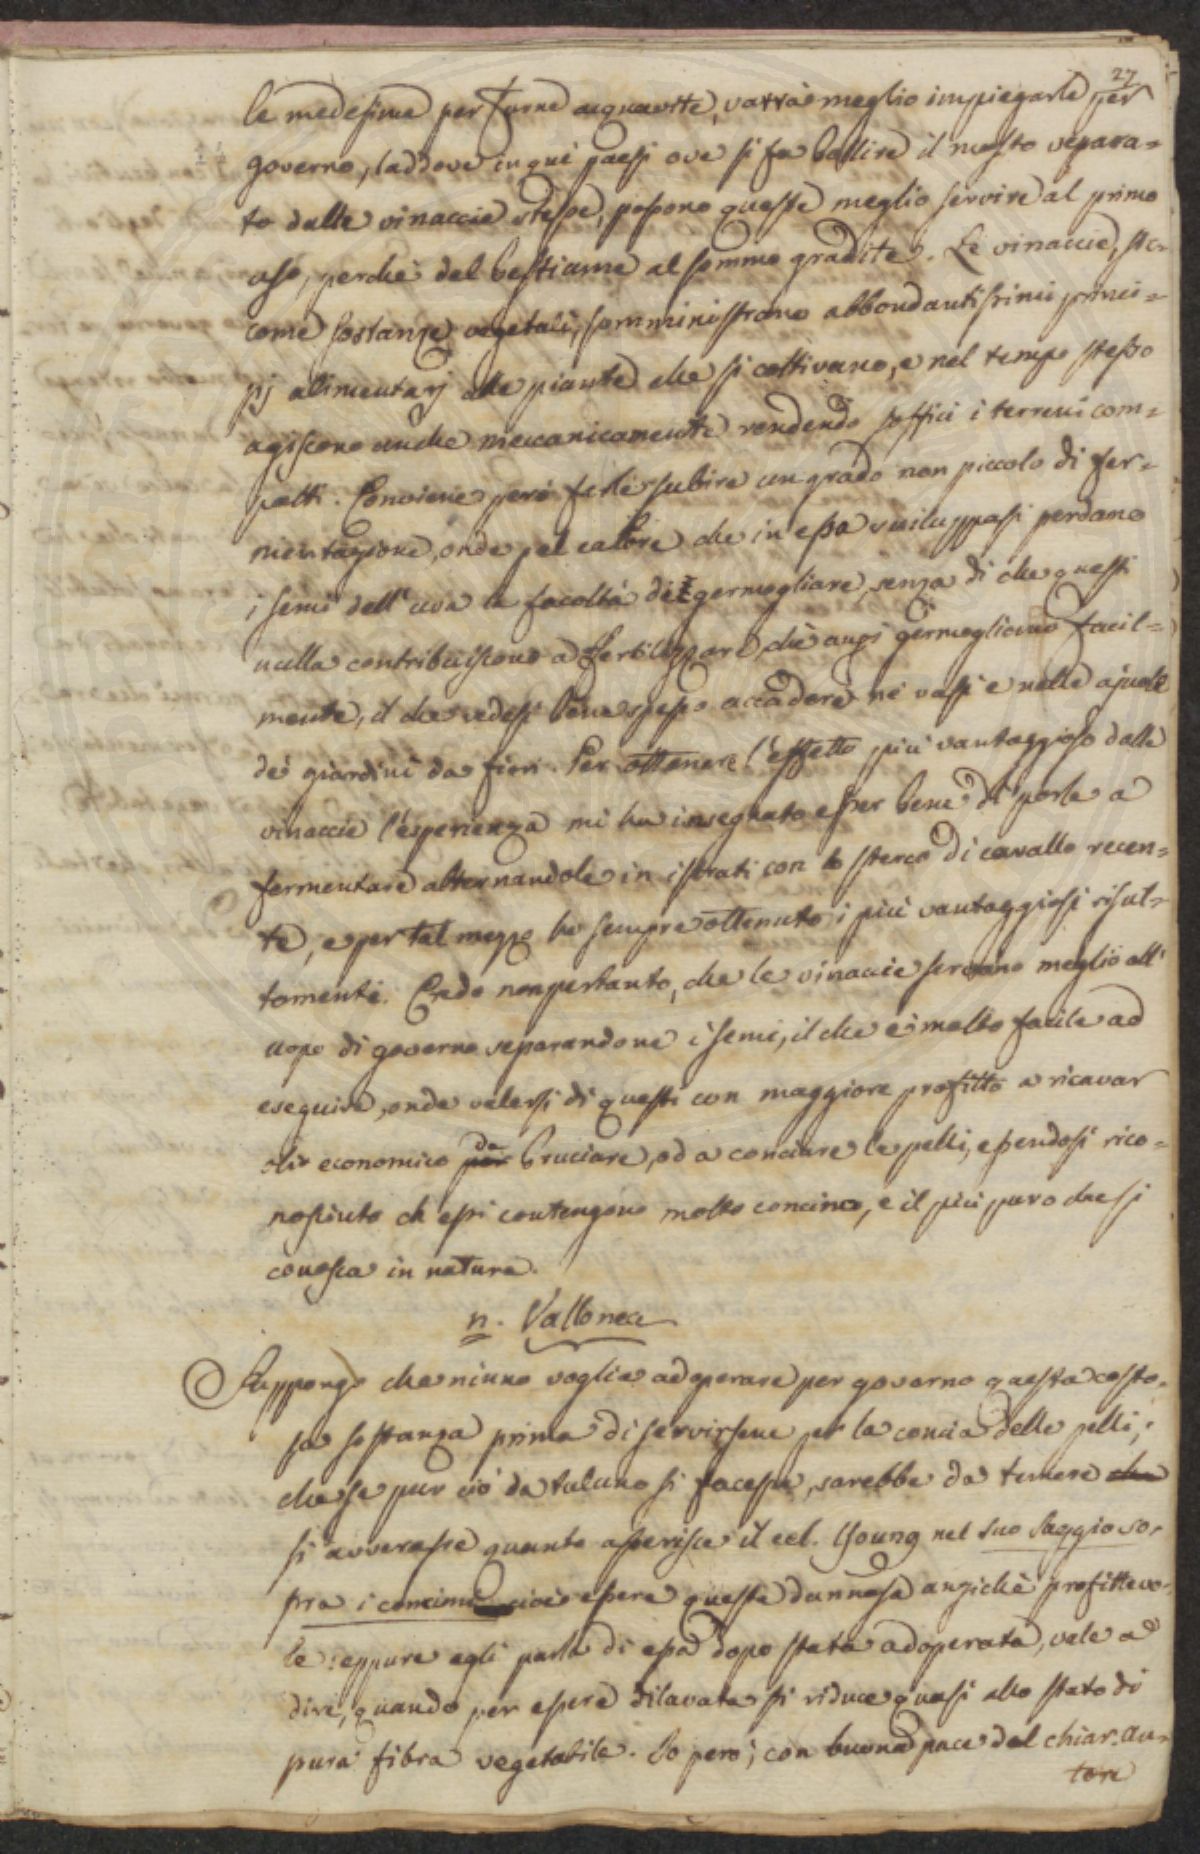 27
le medesime per farne acquavite, varrà meglio impiegarle per
governo, laddove in quei paesi ove si fa bollire il mosto separa=
to dalle vinaccie stesse, possono queste meglio servire al primo
uso, perchè dal bestiame al sommo gradite. Le vinaccie, sic=
come sostanze vegetali, somministrano abbondantissimi princi=
pj alimentarj alle piante che si coltivano, e nel tempo stesso
agiscono anche meccanicamente rendendo soffici i terreni com=
patti. Conviene però farle subire un grado non piccolo di fer=
mentazione, onde pel calore che in essa sviluppasi perdano
i semi dell'uva la facoltà di germogliare, senza di che questi
nulla contribuiscono a fertilizzare, chè anzi germogliano facil=
mente, il che vedesi bene spesso accadere ne' vasi e nelle ajuole
de' giardini da fiori. Per ottenere l'effetto più vantaggioso dalle
vinaccie l'esperienza mi ha insegnato esser bene di porle a
fermentare alternandole in istrati con lo sterco di cavallo recen=
te, e per tal mezzo ho sempre ottenuto i più vantaggiosi risul=
tamenti. Credo nonpertanto, che le vinaccie servano meglio all'
uopo di governo separandone i semi, il che è molto facile ad
eseguire, onde valersi di questi con maggiore profitto a ricavar
olio economico per da bruciare, od a conciare le pelli, essendosi rico=
nosciuto ch'essi contengono molto concino, e il più puro che si
conosca in natura.
n. Vallonea
Suppongo che niuno voglia adoperare per governo questa costo=
sa sostanza prima di servirsene per la concia delle pelli;
che se pur ciò da taluno si facesse, sarebbe da temere che
si avverasse quanto asserisce il cel. Young nel suo Saggio so=
pra i concimi cioè essere questa dannosa anzichè profittevo=
le: eppure egli parla di essa dopo stata adoperata, vale a
dire, quando per essere dilavata si riduce quasi allo stato di
pura fibra vegetabile. Io però, con buona pace del chiar. au=
tore